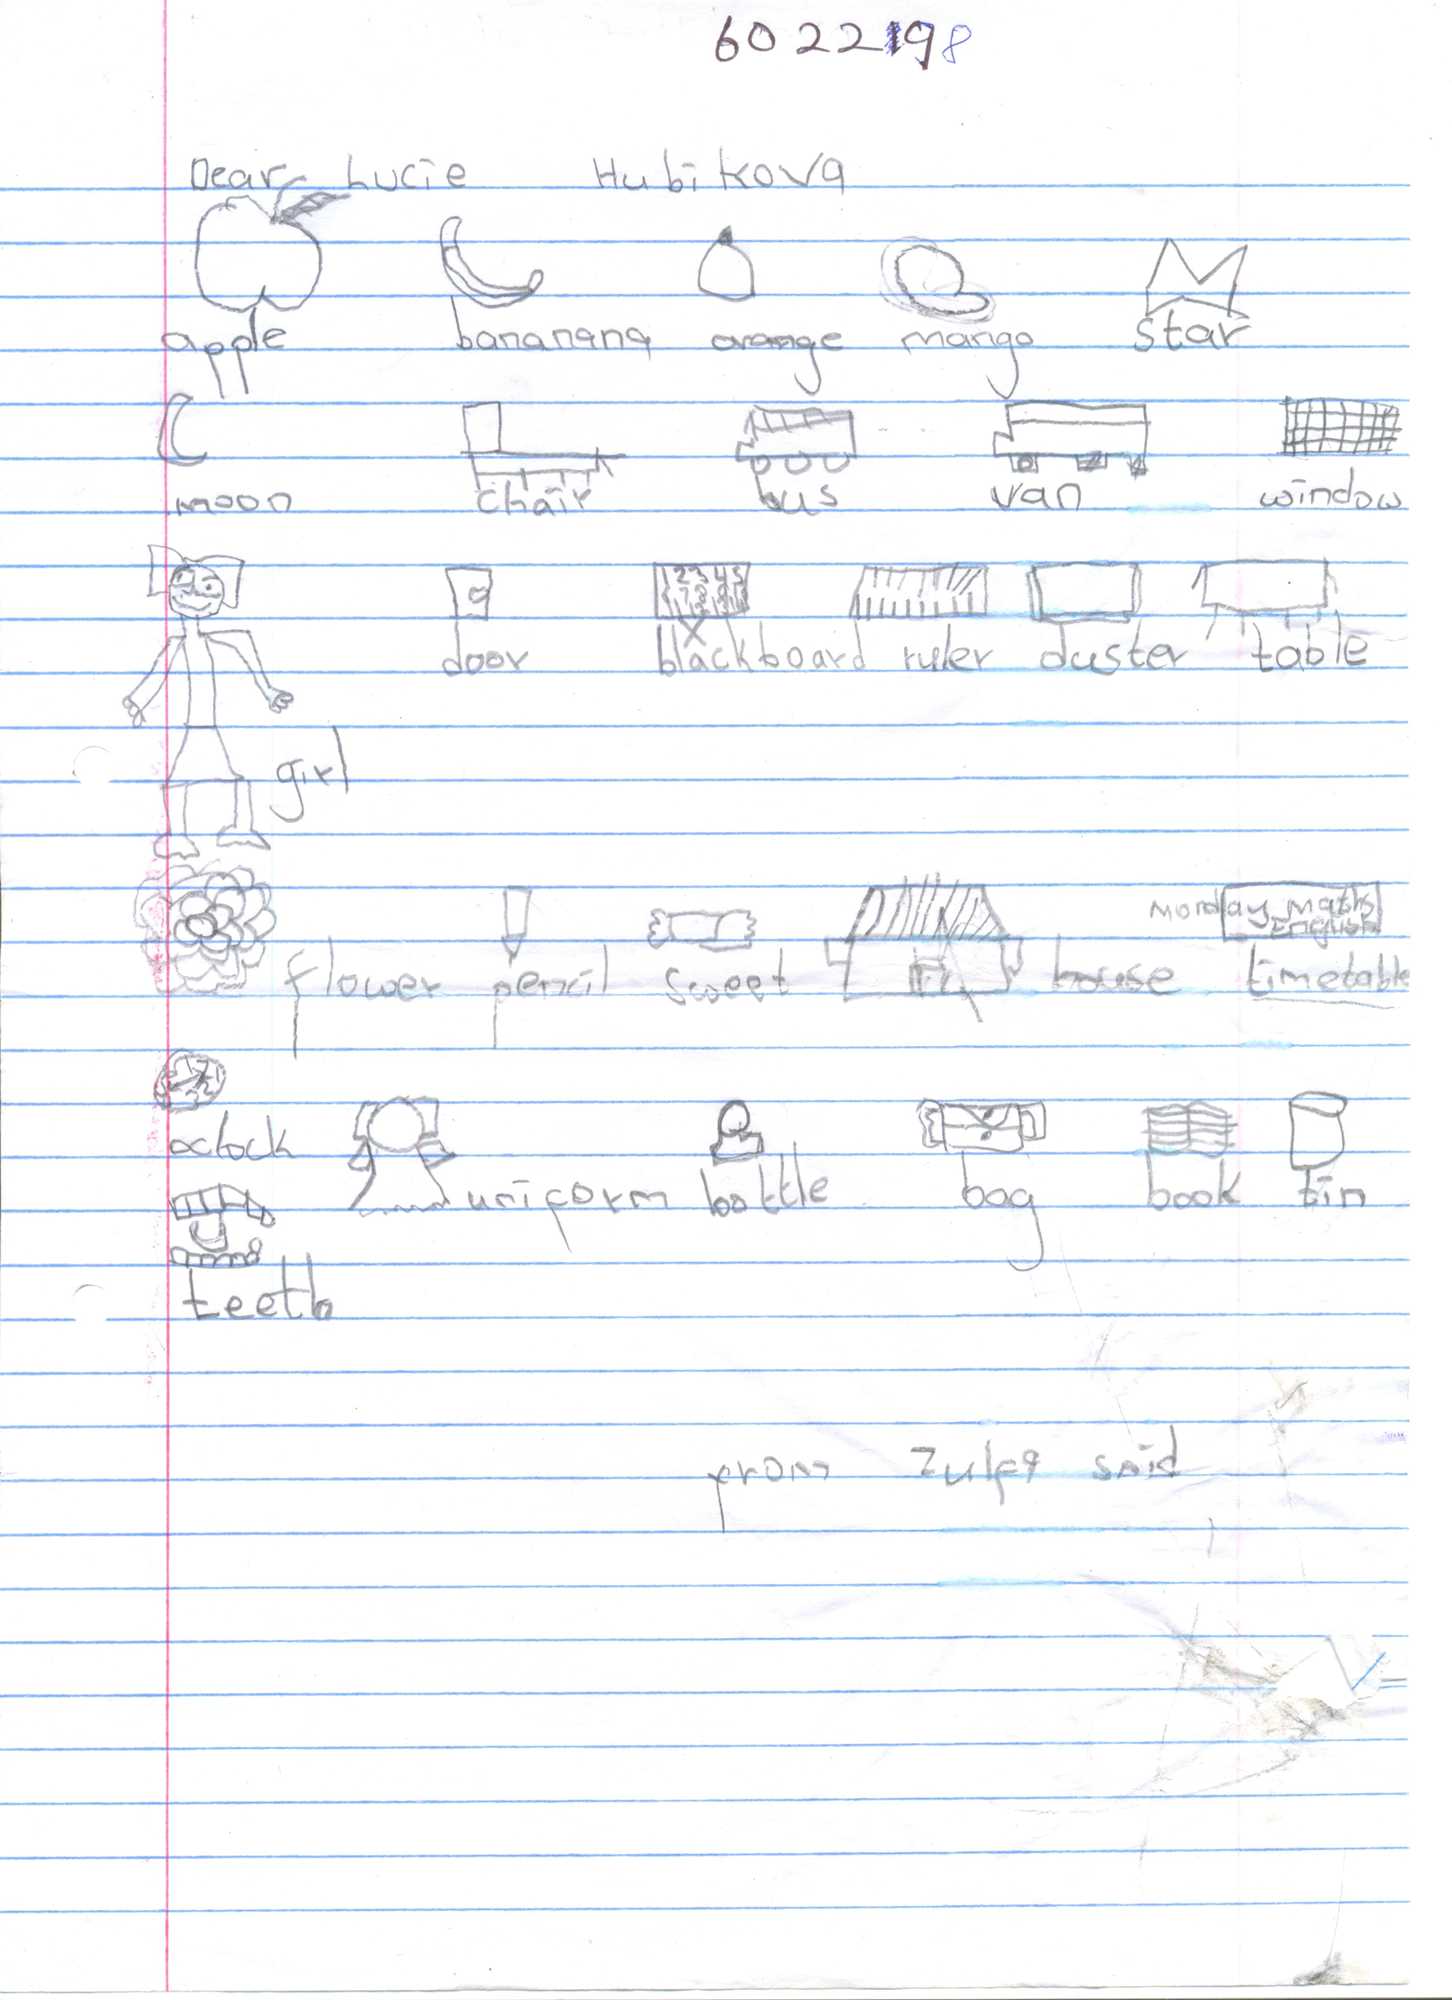 6022198
Dear Lucie Hubikova
apple bananana orange mango star
moon chair bus van window
door blackboard ruler duster table
girl
monday maths
English
flower pencil sweet house timetable
oclock uniform bottle bag book tin
teeth
from Zulfa said